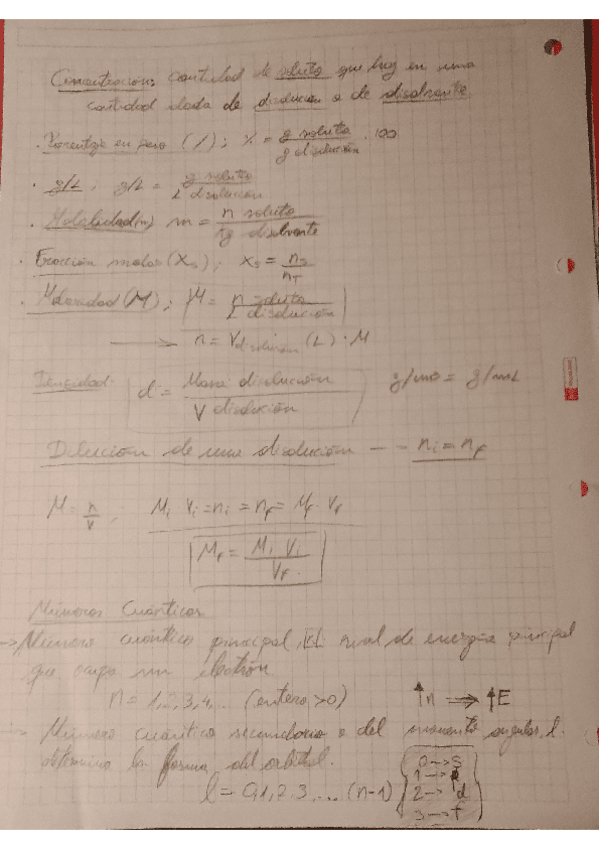 Concentración: cantidad de soluto que hay en una
cantidad dada de disolución o de disolvente.
· Porcentaje en peso (%); % = g soluto / g disolución · 100
· g/L; g/L = g soluto / L disolución
· Molalidad (m) m = n soluto / Kg disolvente
· Fracción molar (Xs); Xs = ns / nT
· Molaridad (M); M = n soluto / L disolución
→ n = Vdisolución (L) · M
Densidad: d = Masa disolución / V disolución g/mL
Dilución de una disolución -- ni = nf
M = n/V; Mi Vi = ni = nf = Mf · Vf
Mf = Mi Vi / Vf
Números Cuánticos
→ Número cuántico principal, El nivel de energía principal
que ocupa un electrón.
n = 1,2,3,4,... (entero >0) ↑n → ↑E
→ Número cuántico secundario o del momento angular, l.
determina la forma del orbital.
l = 0,1,2,3,... (n-1) 0→s
1→p
2→d
3→f